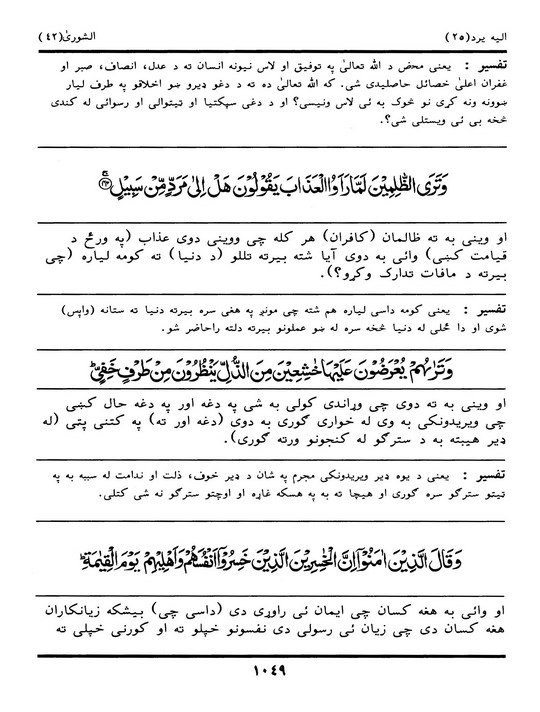 الیه یرد(۲۵) الشوریٰ(۴۲)
تفسیر : یعنی محض د الله تعالیٰ په توفیق او لاس نیونه انسان ته د عدل، انصاف، صبر او
غفران اعلیٰ خصائل حاصلیدی شی. که الله تعالیٰ ده ته د دغو ډیرو ښو اخلاقو په طرف لیار
ښوونه ونه کړی نو څوک به ئی لاس ونیسی؟ او د دغی سپکتیا او تیتوالی او رسوائی له کندی
څخه بی ئی ویستلی شی؟.
وَتَرَى الظّٰلِمِيْنَ لَمَّا رَاَوُا الْعَذَابَ يَقُوْلُوْنَ هَلْ اِلٰى مَرَدٍّ مِّنْ سَبِيْلٍ
او وینی به ته ظالمان (کافران) هر کله چی ووینی دوی عذاب (په ورځ د
قیامت کښی) وائی به دوی آیا شته بیرته تللو (د دنیا) ته کومه لیاره (چی
بیرته د مافات تدارک وکړو؟).
تفسیر : یعنی کومه داسی لیاره هم شته چی مونږ په هغی سره بیرته دنیا ته ستانه (واپس)
شوی او دا ځلی له دنیا څخه سره له ښو عملونو بیرته دلته راحاضر شو.
وَتَرٰىهُمْ يُعْرَضُوْنَ عَلَيْهَا خٰشِعِيْنَ مِنَ الذُّلِّ يَنْظُرُوْنَ مِنْ طَرْفٍ خَفِيٍّ
او وینی به ته دوی چی وړاندی کولی به شی په دغه اور په دغه حال کښی
چی ویریدونکی به وی له خواری ګوری به دوی (دغه اور ته) په کتنی پتی (له
ډیر هیبته به د سترګو له کنجونو ورته ګوری).
تفسیر : یعنی د یوه ډیر ویریدونکی مجرم په شان د ډیر خوف، ذلت او ندامت له سببه به په
تیتو سترګو سره ګوری او هیچا ته به په هسکه غاړه او اوچتو سترګو نه شی کتلی.
وَقَالَ الَّذِيْنَ اٰمَنُوْٓا اِنَّ الْخٰسِرِيْنَ الَّذِيْنَ خَسِرُوْٓا اَنْفُسَهُمْ وَاَهْلِيْهِمْ يَوْمَ الْقِيٰمَةِ
او وائی به هغه کسان چی ایمان ئی راوړی دی (داسی چی) بیشکه زیانکاران
هغه کسان دی چی زیان ئی رسولی دی نفسونو خپلو ته او کورنی خپلی ته
۱۰۴۹